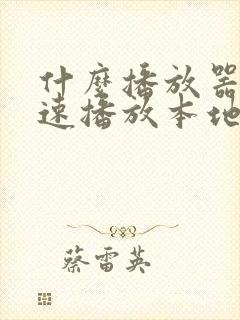 什麼播放器
速播放本地
蔡雷英